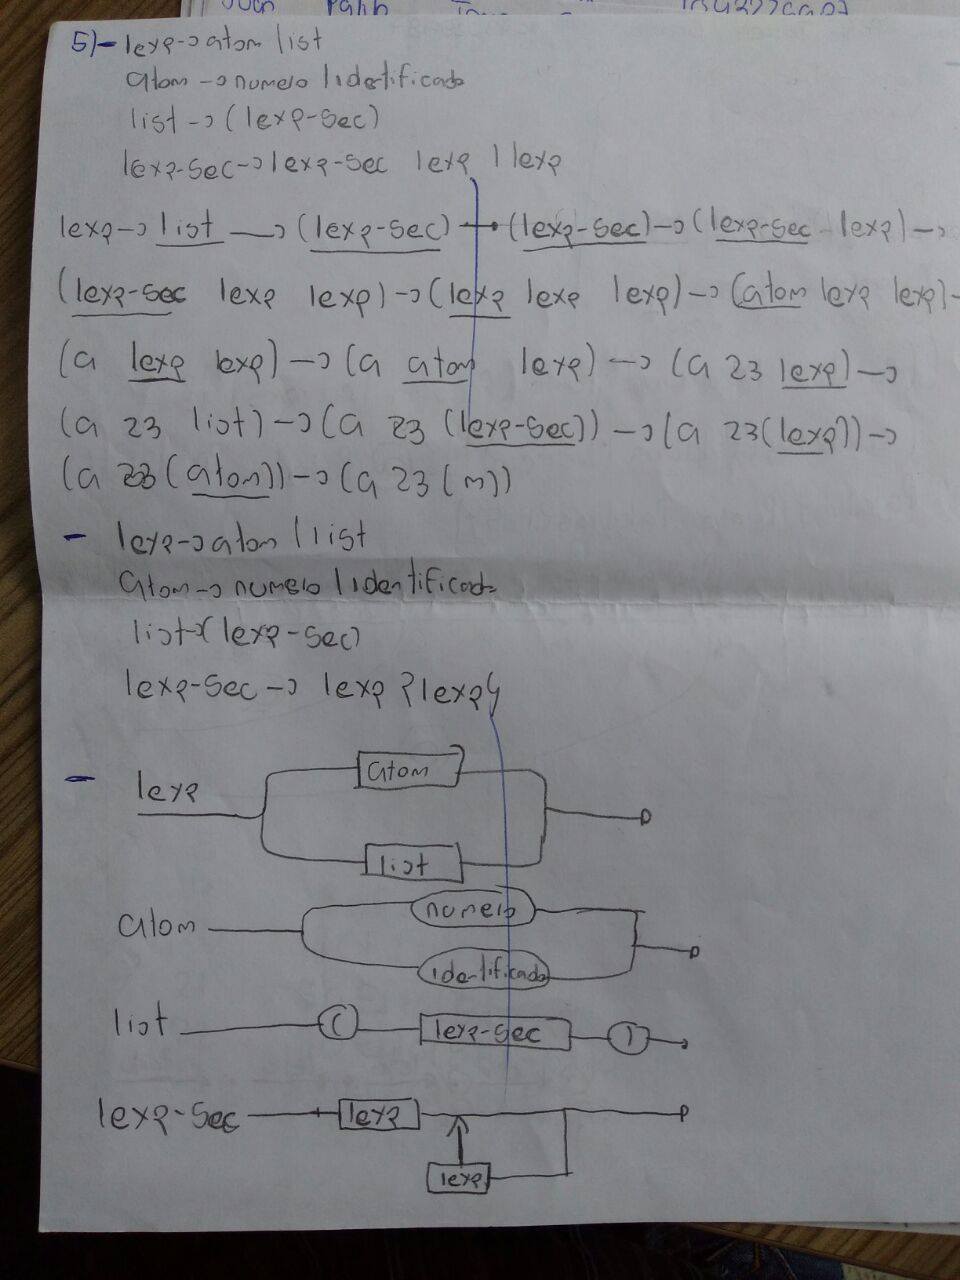 5)- lexp→atom list
atom→numero | identificado
list→(lexp-sec)
lexp-sec→lexp-sec lexp | lexp
lexp→list→(lexp-sec)→(lexp-sec)→(lexp-sec lexp)→
(lexp-sec lexp lexp)→(lexp lexp lexp)→(atom lexp lexp)-
(a lexp lexp)→(a atom lexp)→(a 23 lexp)→
(a 23 list)→(a 23 (lexp-sec))→(a 23(lexp))→
(a 23 (atom))→(a 23 (m))
- lexp→atom | list
atom→numero | identificado
list→(lexp-sec)
lexp-sec→ lexp {lexp}
- lexp
atom
list
atom
numero
identificado
list ( lexp-sec )
lexp-sec lexp
lexp